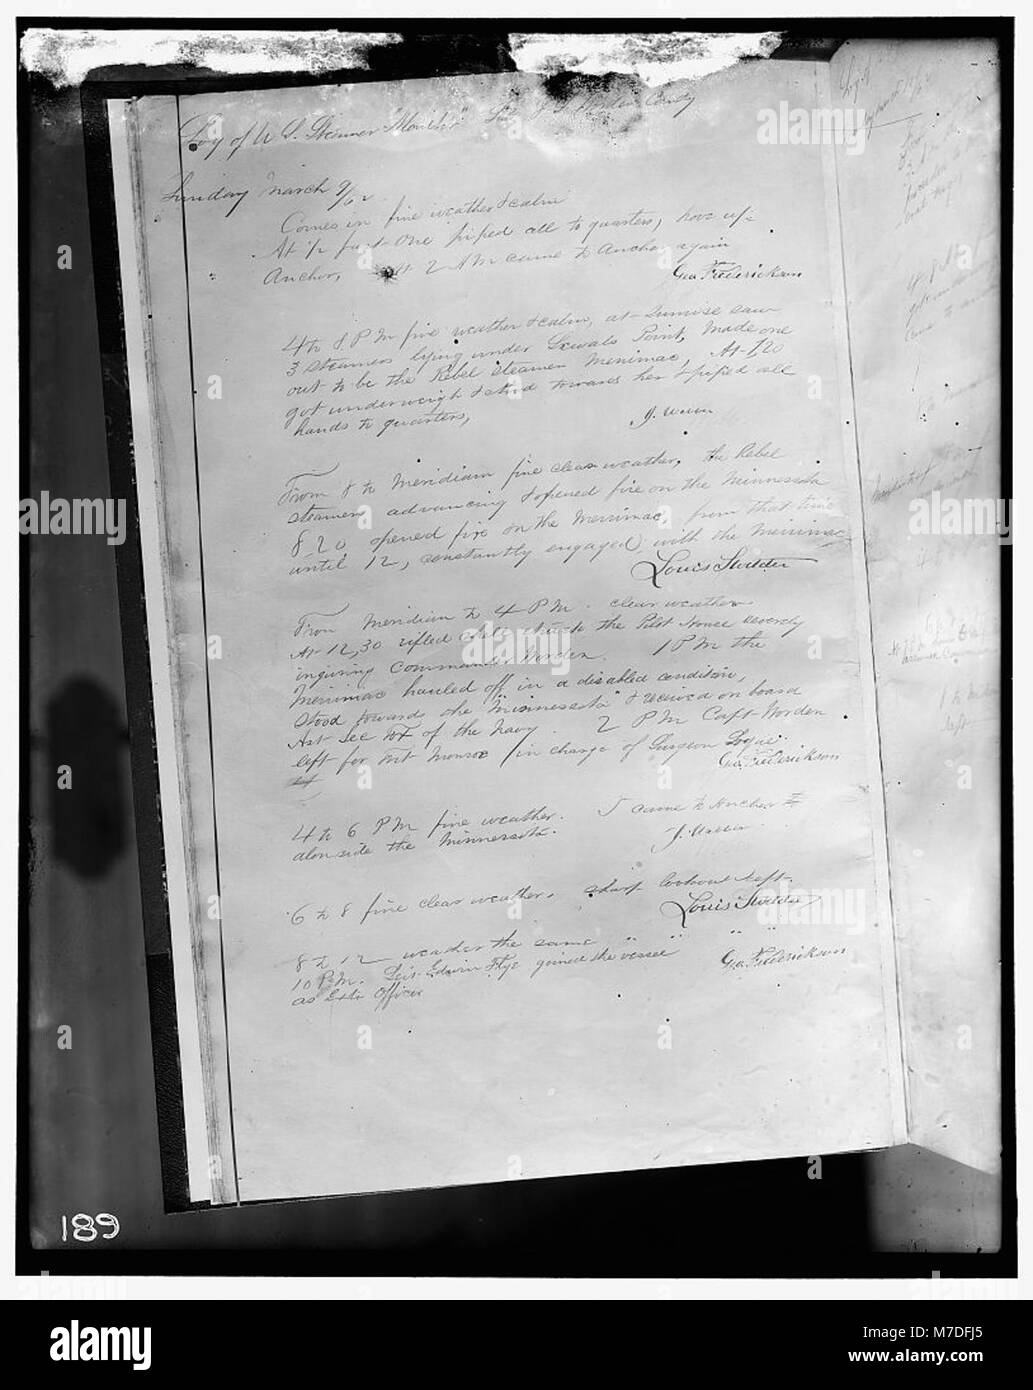 Log of U. S. Steamer "Monitor" J. L. Worden Comdg
Sunday March 9/62
Comes in fine weather & calm
At ½ past One piped all to quarters, hove up
Anchor, At 2 AM came to Anchor again
Geo Frederickson
4 to 8 PM fine weather & calm, at Sunrise saw
3 steamers lying under Sewals Point, Made one
out to be the Rebel steamer Merrimac, At 7,20
got underweigh & stood towards her & piped all
hands to quarters,
J. Weber
From 8 to Meridiam fine clear weather, the Rebel
steamers advancing & opened fire on the Minnesota
8-20 opened fire on the Merrimac from that time
until 12, constantly engaged with the Merrimac
Louis Stodder
From Meridian to 4 PM. clear weather
At 12,30 rifled shell struck the Pilot House severely
injuring Commander Worden. 1 PM the
Merrimac hauled off in a disabled condition,
Stood towards the "Minnesota" & received on board
Ast Sec Fox of the Navy. 2 PM Capt Worden
left for Fort Monroe in charge of Surgeon Logue.
Geo. Frederickson
4 to 6 PM fine weather. came to Anchor
alonside the Minnesota.
J. Webber
6 to 8 fine clear weather. sharp lookout kept.
Louis Stodder
8 to 12 weather the same " " "
10 P.M. Lei. Edwin Flye joined the vessel
Geo. Frederickson
as Extr Officer
April
189
alamy
Image ID: M7DFJ5
www.alamy.com